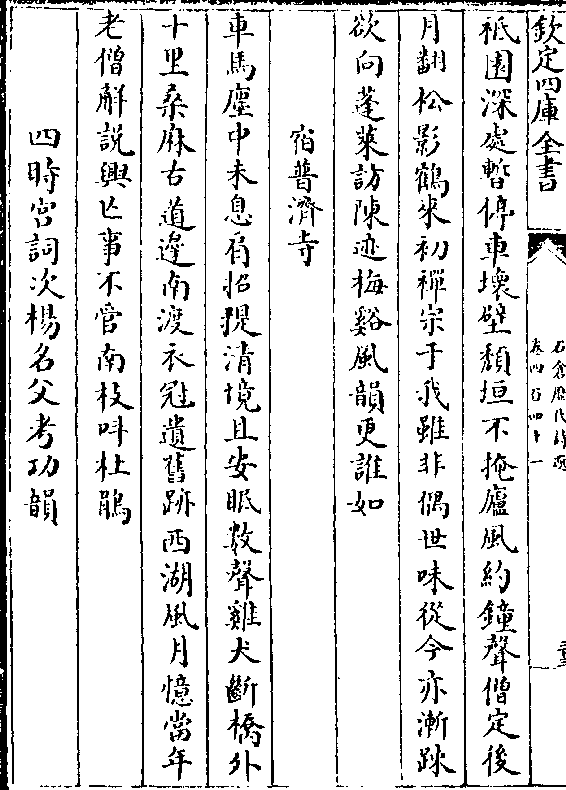 欽定四庫全書
石倉歷代詩選
卷四百四十一
祗園深處暫停車壞壁頽垣不掩廬風約鐘聲僧定後
月翻松影鶴來初禪宗于我雖非偶世味從今亦漸踈
欲向蓬萊訪陳迹梅谿風韻更誰如
宿普濟寺
車馬塵中未息肩招提清境且安眠數聲雞犬斷橋外
十里桑麻古道邊南渡衣冠遺舊跡西湖風月憶當年
老僧觧説興亡事不管南枝呌杜鵑
四時宫詞次楊名父考功韻